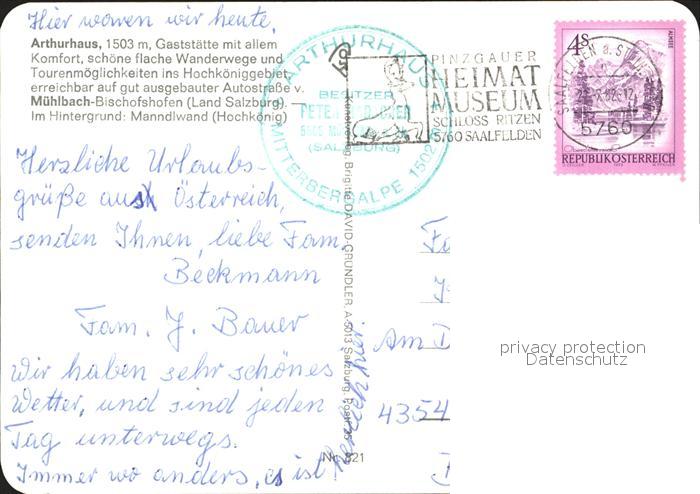 Hier waren wir heute.
Arthurhaus, 1503 m, Gaststätte mit allem
Komfort, schöne flache Wanderwege und
Tourenmöglichkeiten ins Hochköniggebiet,
erreichbar auf gut ausgebauter Autostraße v.
Mühlbach-Bischofshofen (Land Salzburg).
Im Hintergrund: Manndlwand (Hochkönig)
Herzliche Urlaubs-
grüße aus Österreich,
senden Ihnen, liebe Fam.
Beckmann
Fam. J. Bauer
Wir haben sehr schönes
Wetter, und sind jeden
Tag unterwegs.
Immer wo anders, es ist
herrlich hier
Nr. 521
Kunstverlag Brigitte DAVID-GRÜNDLER, A-5013 Salzburg, Postf.
ARTHURHAUS
BESITZER
PETER
(SALZBURG)
MITTERBERGALPE 1502
PINZGAUER
HEIMAT
MUSEUM
SCHLOSS RITZEN
5760 SAALFELDEN
5760
4S
ALMSEE
REPUBLIK ÖSTERREICH
Fa
Am D
4354
privacy protection
Datenschutz